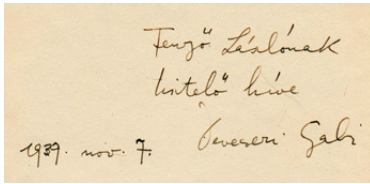 Fenyő Lászlónak
tisztelő híve
Devecseri Gabi
1939. nov. 7.